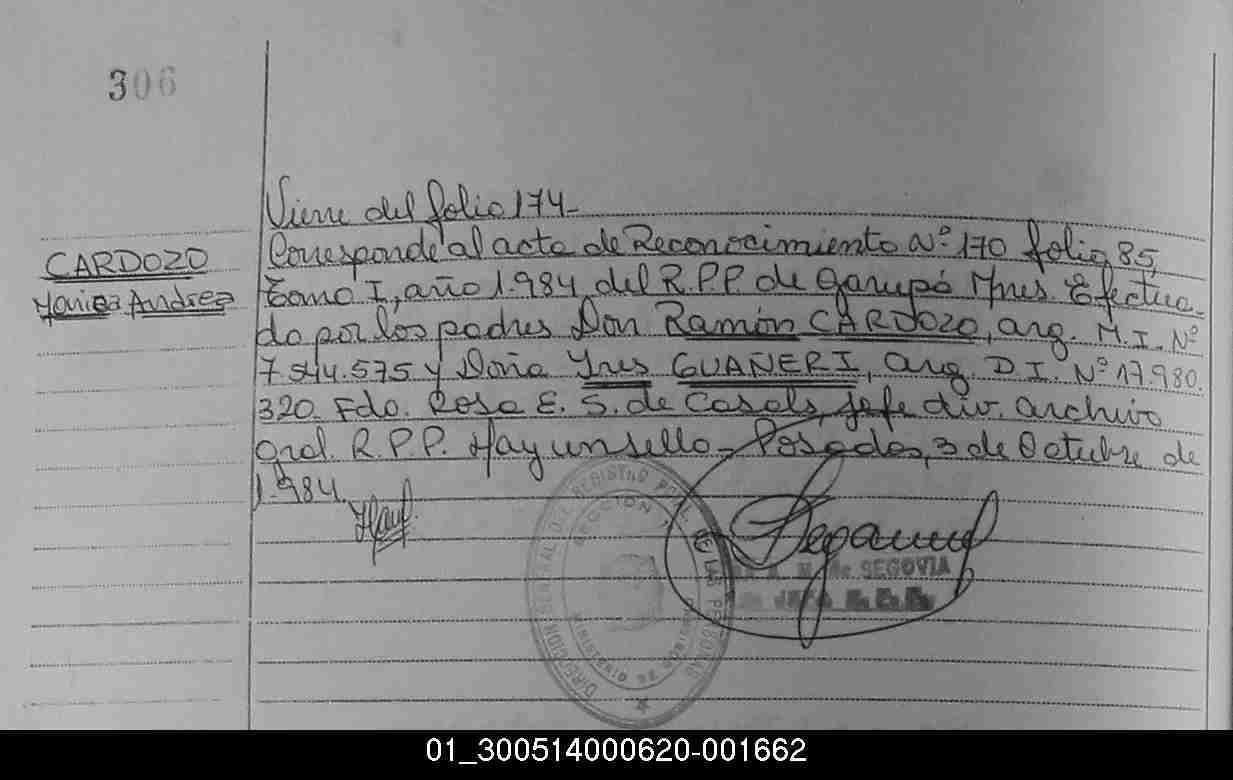 306
Viene del folio 174-
CARDOZO
Corresponde al acta de Reconocimiento Nº 170 folio 85,
Andrez
tomo I, año 1.984 del R.P.P. de Garupá Mnes. Efectua-
do por los padres Don Ramón CARDOZO, arg. M.I. Nº
7.544.575 y Doña Ynes GUAÑERI, arg. D.I. Nº 17.980.
320. Fdo. Rosa E. S. de Casals, jefe div. archivo
gral. R.P.P. Hay un sello- Posadas, 3 de Octubre de
1.984.
DIRECCION GENERAL DEL REGISTRO PCIAL. DE LAS PERSONAS
SECCION
MINISTERIO DE GOBIERNO
de SEGOVIA
01_300514000620-001662